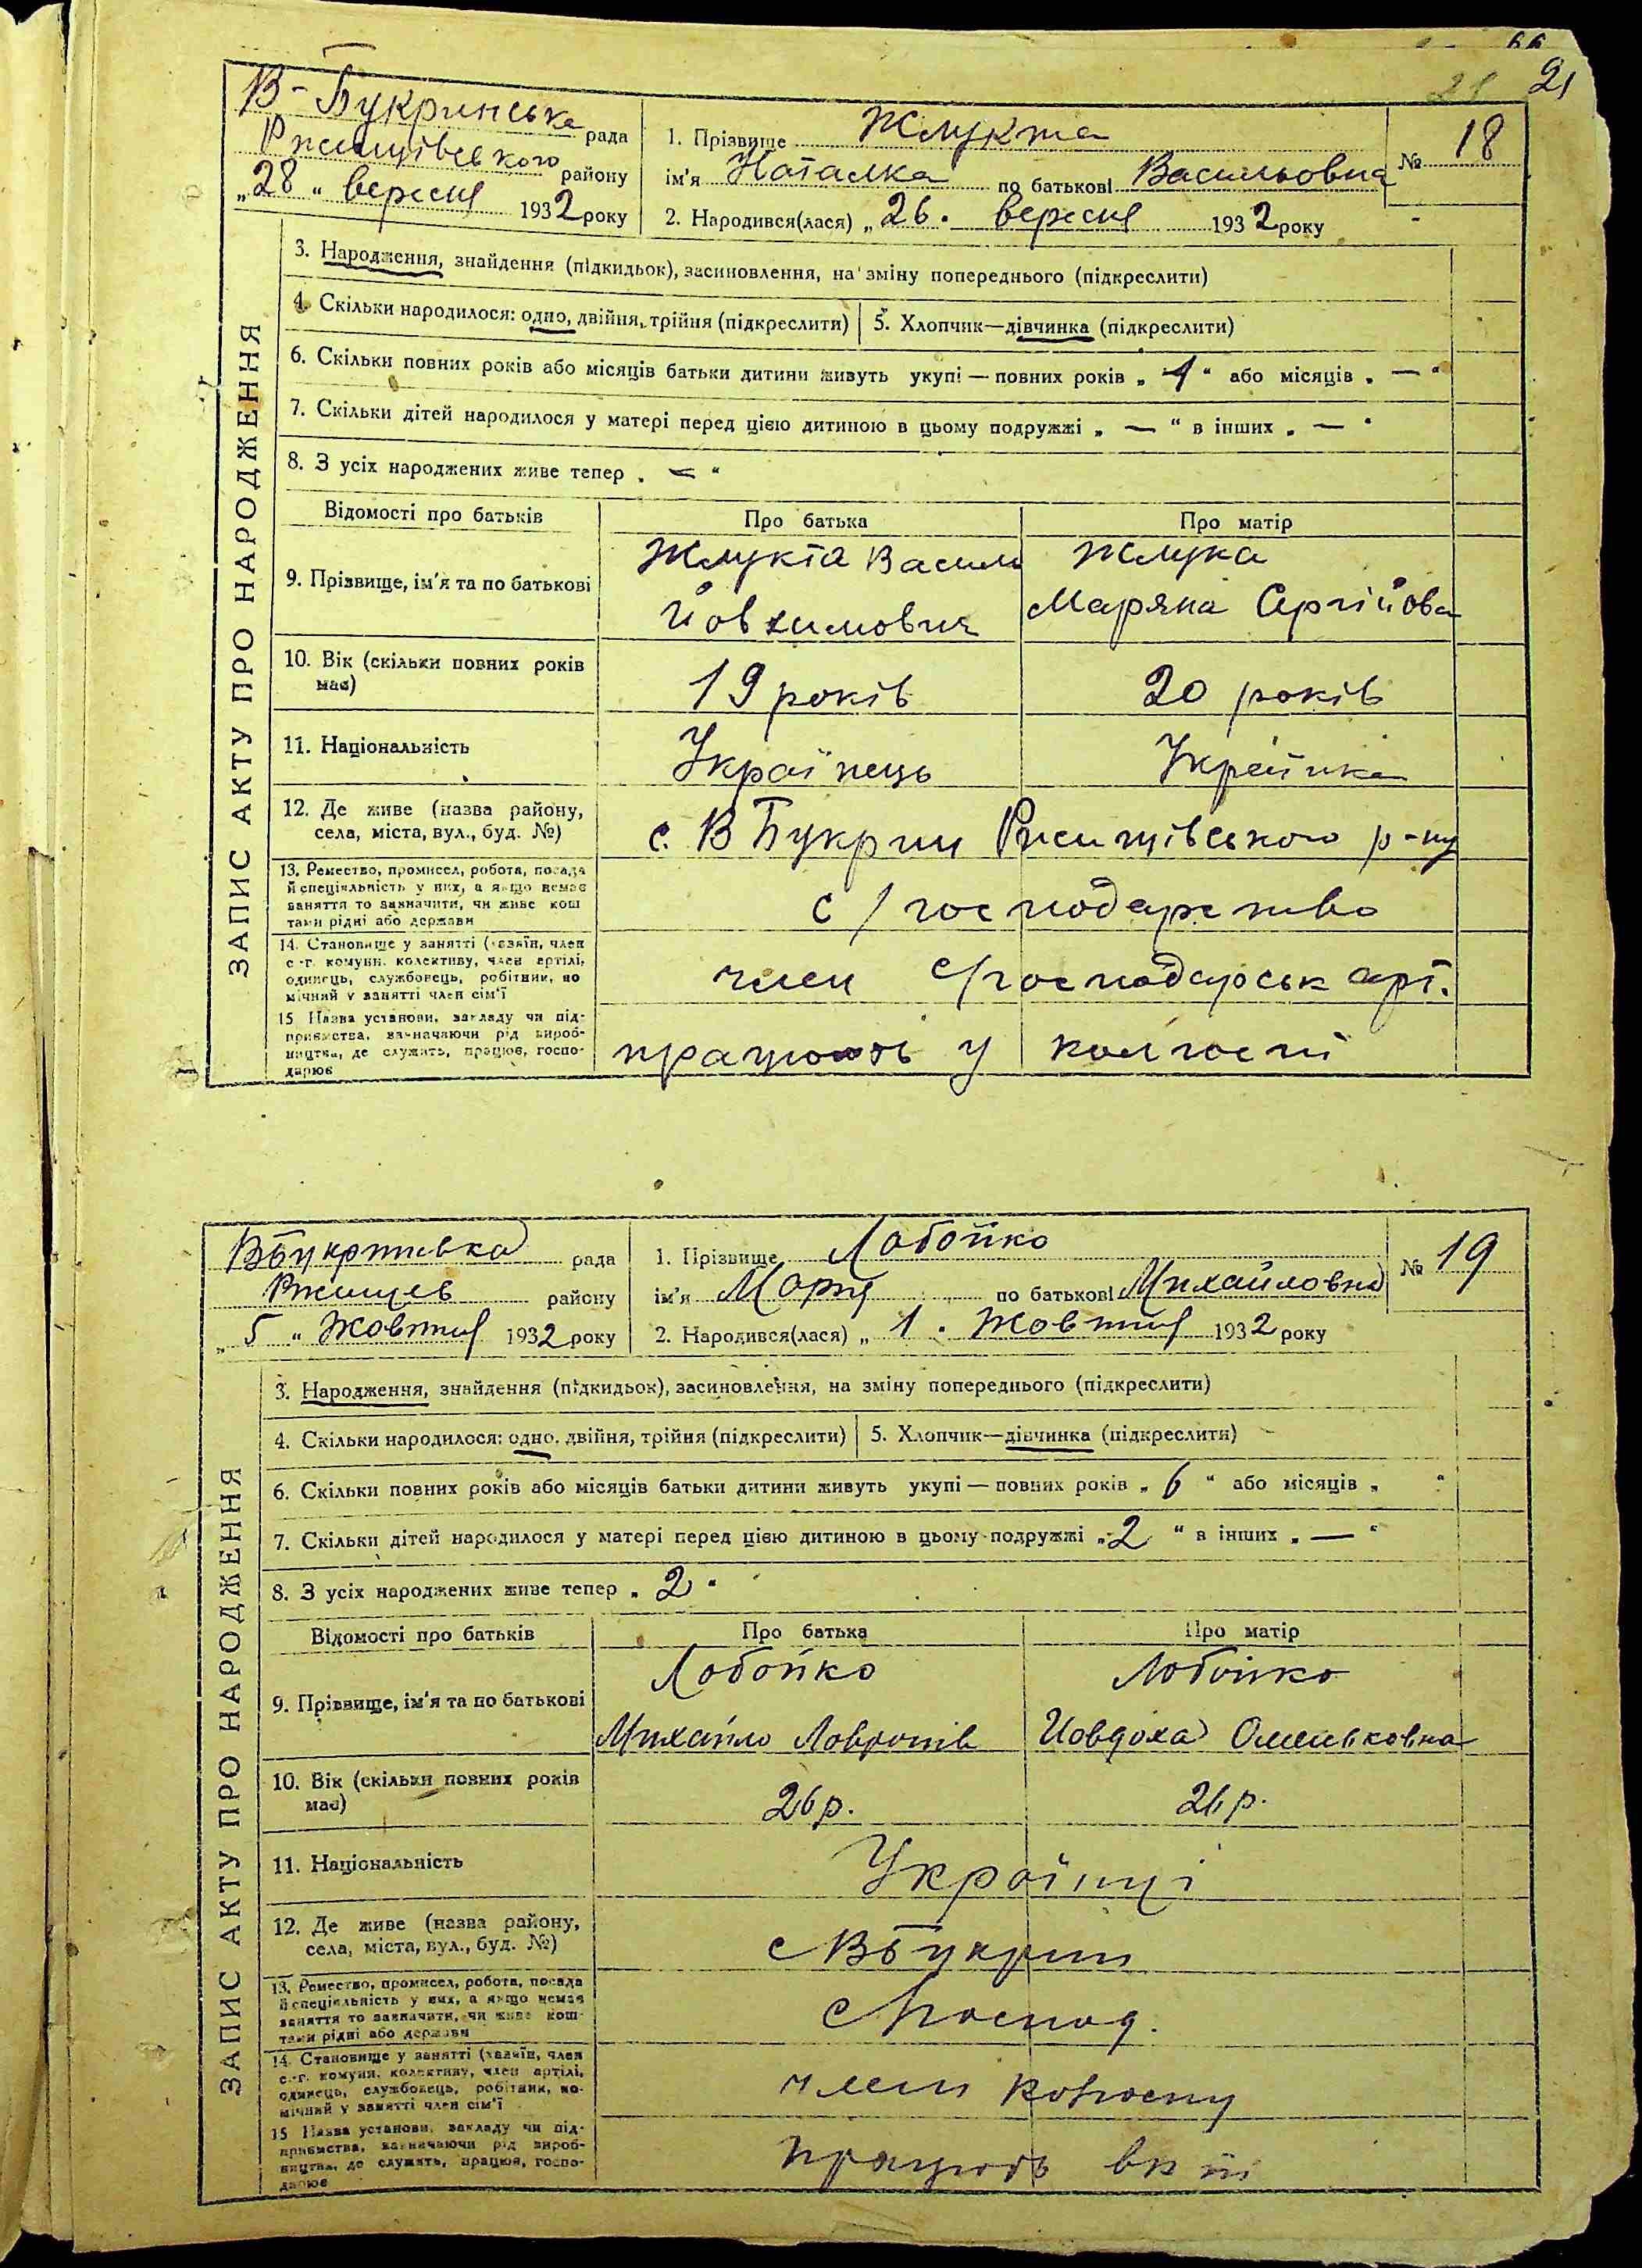 66
21
В-Букринська рада
Ржищівського району
„28“ вересня 1932 року
1. Прізвище Жлукта
ім'я Наталка по батькові Васильовна
№ 18
2. Народився(лася) „26. вересня 1932 року
ЗАПИС АКТУ ПРО НАРОДЖЕННЯ
3. Народження, знайдення (підкидьок), засиновлення, на зміну попереднього (підкреслити)
4. Скільки народилося: одно, двійня, трійня (підкреслити) 5. Хлопчик—дівчинка (підкреслити)
6. Скільки повних років або місяців батьки дитини живуть укупі — повних років „1“ або місяців „—“
7. Скільки дітей народилося у матері перед цією дитиною в цьому подружжі „—“ в інших „—“
8. З усіх народжених живе тепер „—“
Відомості про батьків Про батька Про матір
9. Прізвище, ім'я та по батькові
Жлукта Василь
Йовхимович
Жлука
Маряна Сергійовна
10. Вік (скільки повних років має) 19 років 20 років
11. Національність Українець Українка
12. Де живе (назва району,
села, міста, вул., буд. №)
с. В Букрин Ржищівського р-ну
13. Ремество, промисел, робота, посада
й спеціяльність у них, а якщо немає
заняття то зазначити, чи живе кош
тами рідні або держави
с/господарство
14. Становище у занятті (хазяїн, член
с.-г. комуни, колективу, член артілі,
одинець, службовець, робітник, по
мічний у занятті член сім'ї
член с/господарськ арт.
15 Назва установи, закладу чи під-
приємства, зазначаючи рід вироб-
ництва, де служить, працює, госпо-
дарює
працюють у колгоспі
ВБукринська рада
Ржищев району
„5“ Жовтня 1932 року
1. Прізвище Лобойко
ім'я Марія по батькові Михайловна
№ 19
2. Народився(лася) „1. Жовтня 1932 року
ЗАПИС АКТУ ПРО НАРОДЖЕННЯ
3. Народження, знайдення (підкидьок), засиновлення, на зміну попереднього (підкреслити)
4. Скільки народилося: одно, двійня, трійня (підкреслити) 5. Хлопчик—дівчинка (підкреслити)
6. Скільки повних років або місяців батьки дитини живуть укупі — повних років „6“ або місяців „ “
7. Скільки дітей народилося у матері перед цією дитиною в цьому подружжі „2“ в інших „—“
8. З усіх народжених живе тепер „2“
Відомості про батьків Про батька Про матір
9. Прізвище, ім'я та по батькові
Лобойко
Михайло
Лобойко
Иовдоха
10. Вік (скільки повних років має) 26 р. 26 р.
11. Національність Українці
12. Де живе (назва району,
села, міста, вул., буд. №)
с ВБукрин
13. Ремество, промисел, робота, посада
й спеціяльність у них, а якщо немає
заняття то зазначити, чи живе кош-
тами рідні або держави
с/господ.
14. Становище у занятті (хазяїн, член
с.-г. комуни, колективу, член артілі,
одинець, службовець, робітник, по-
мічний у занятті член сім'ї
член колгоспу
15 Назва установи, закладу чи під-
приємства, зазначаючи рід вироб-
ництва, де служить, працює, госпо-
дарює
працюють